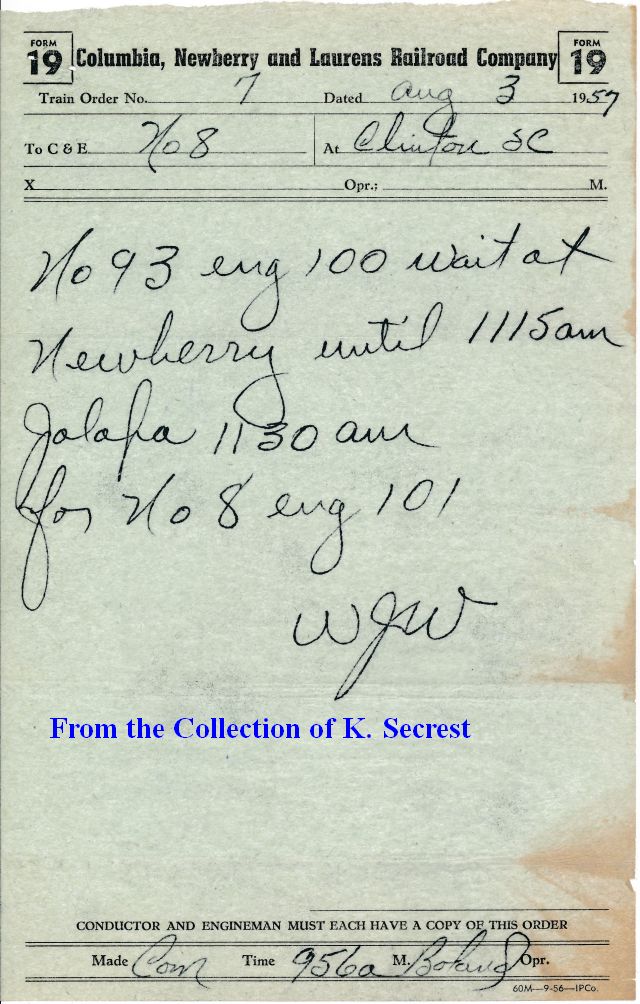 FORM 19 Columbia, Newberry and Laurens Railroad Company FORM 19
Train Order No. 7 Dated Aug 3 1957
To C & E No 8 At Clinton SC
X Opr.; M.
No 93 eng 100 wait at
Newberry until 1115am
Jalapa 1130 am
for No 8 eng 101
WJW
From the Collection of K. Secrest
CONDUCTOR AND ENGINEMAN MUST EACH HAVE A COPY OF THIS ORDER
Made Com Time 956a M. Boland Opr.
60M—9-56—IPCo.